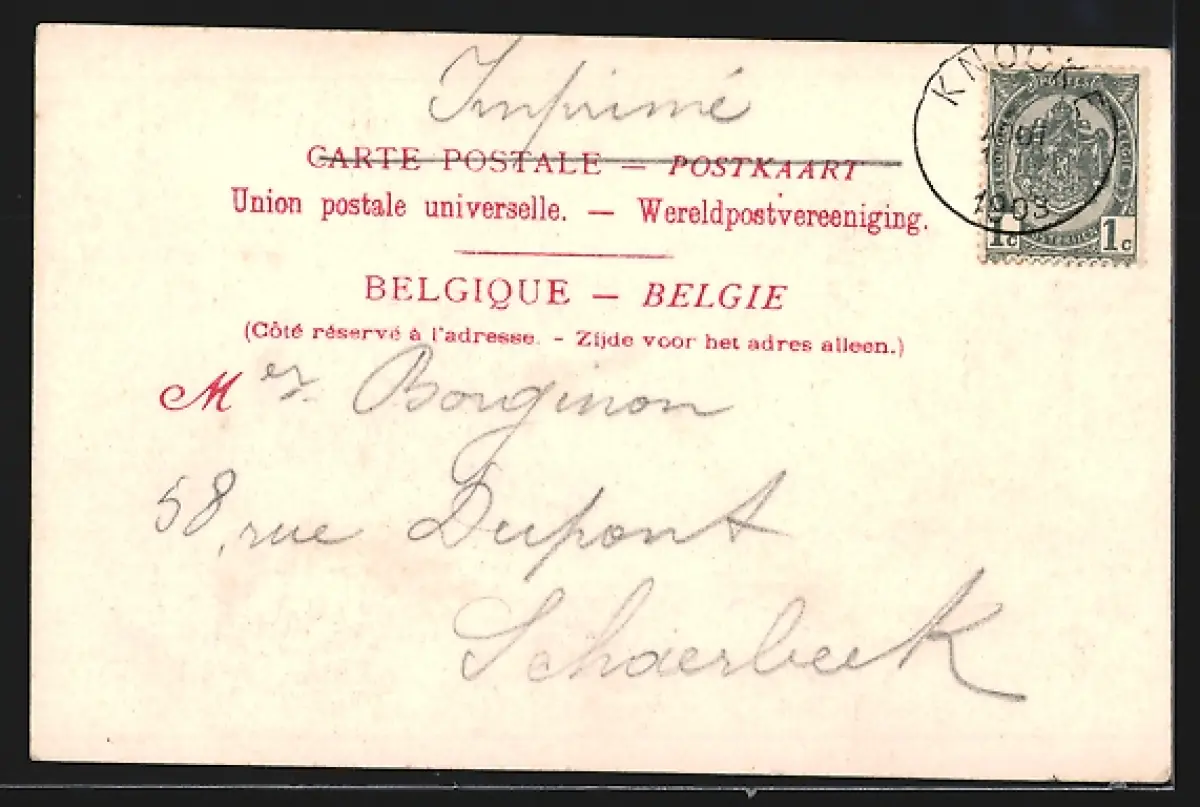 Imprimé
CARTE POSTALE — POSTKAART
Union postale universelle. — Wereldpostvereeniging.
BELGIQUE — BELGIE
(Côté réservé à l'adresse. - Zijde voor het adres alleen.)
M er. Borginon
58, rue Dupont
Schaerbeek
KNOCKE
1903
1c 1c